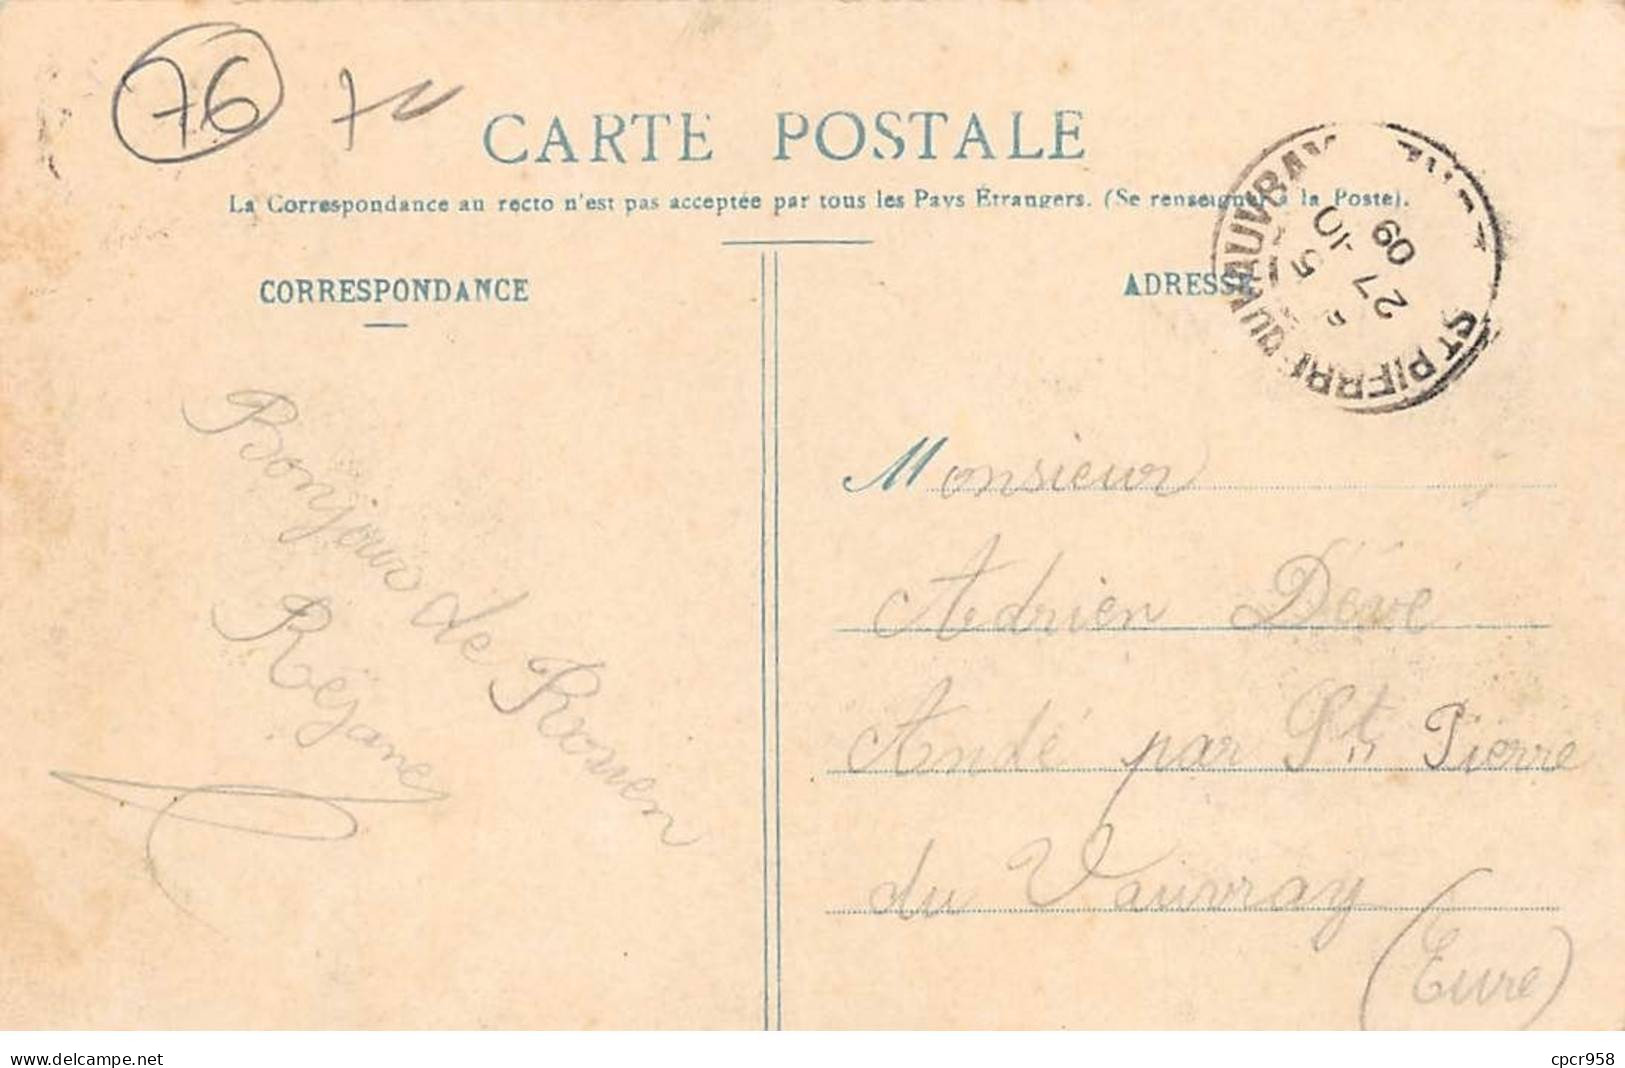 76
CARTE POSTALE
La Correspondance au recto n'est pas acceptée par tous les Pays Étrangers. (Se renseigner à la Poste).
CORRESPONDANCE
ADRESSE
ST PIERRE DU VAUVRAY
5
27 10
09
Bonjour de Rouen
Réjane
Monsieur
Adrien Dévé
Andé par St Pierre
du Vauvray
(Eure)
www.delcampe.net
cpcr958